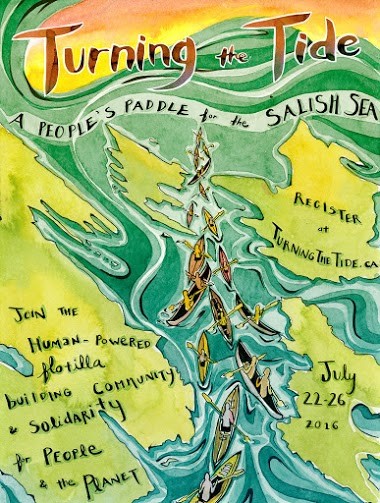 Turning the Tide
A PEOPLE'S PADDLE for the SALISH SEA
REGISTER
at
TURNINGTHETIDE.CA
JOIN THE
HUMAN-POWERED
flotilla
building COMMUNITY
& Solidarity
for PEOPLE
& the PLANET
July
22-26
2016